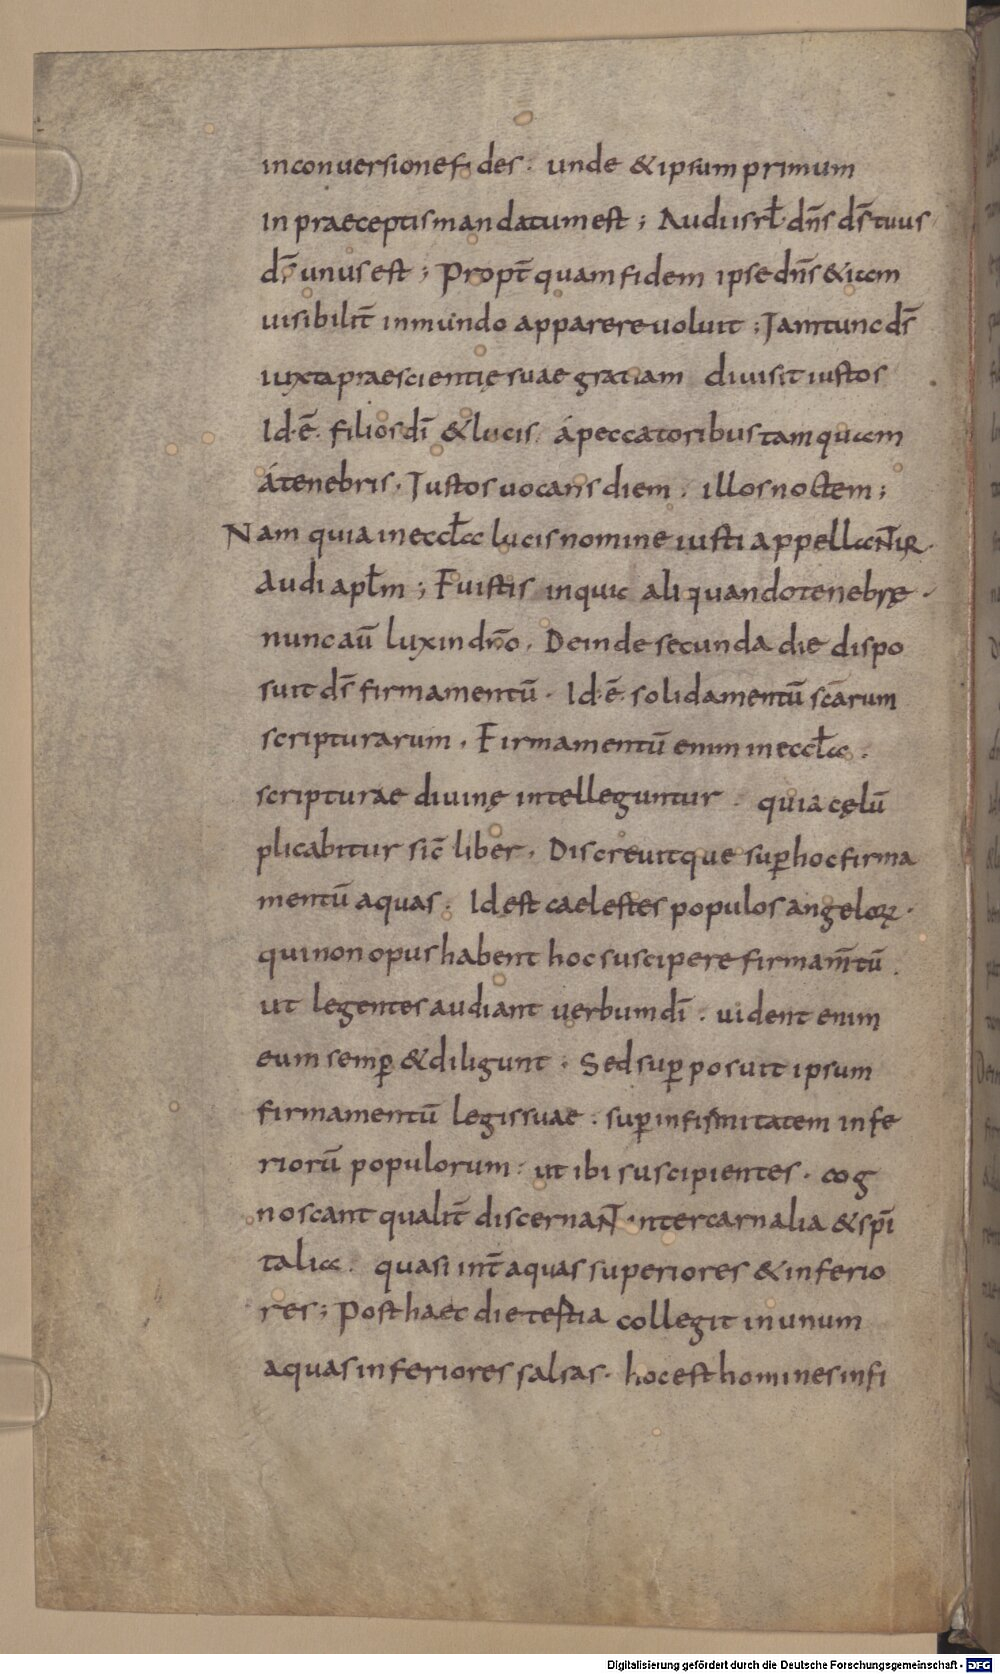 inconuersione fides. unde & ipsum primum
in praeceptis mandatum est; Audi isrł dn̄s ds̄ tuus
ds̄ unus est; Propt̄ quam fidem ipse dn̄s & iam
uisibilit̄ in mundo apparere uoluit; Iam tunc ds̄
iuxta praescientię suae gratiam diuisit iustos
Id·ē· filios dī & lucis. á peccatoribus tamquam
á tenebris. Iustos uocans diem. illos noctem;
Nam quia in eccł̄a lucis nomine iusti appellanT̄ur.
Audi apłm; Fuistis inquit aliquando tenebrę.
nunc aū lux in dn̄o. Deinde secunda die dispo
suit ds̄ firmamentū. Id·ē· solidamentū scārum
scripturarum. Firmamentū enim in eccł̄a.
scripturae diuinę intelleguntur. quia cęlū
plicabitur sic̄ liber. Discreuitque suꝑ hoc firma
mentū aquas. Id est caelestes populos angeloꝝ.
qui non opus habent hoc suscipere firmam̄tū.
ut legentes audiant uerbum dī. uident enim
eum semꝑ & diligunt. Sed suꝑposuit ipsum
firmamentū legis suae. suꝑ infirmitatem infe
riorū populorum. ut ibi suscipientes. cog
noscant qualit̄ discernant inter carnalia & spī
talia. quasi int̄ aquas superiores & inferio
res; Post haec die testia collegit in unum
aquas inferiores salsas. hoc est homines infi
Digitalisierung gefördert durch die Deutsche Forschungsgemeinschaft - DFG